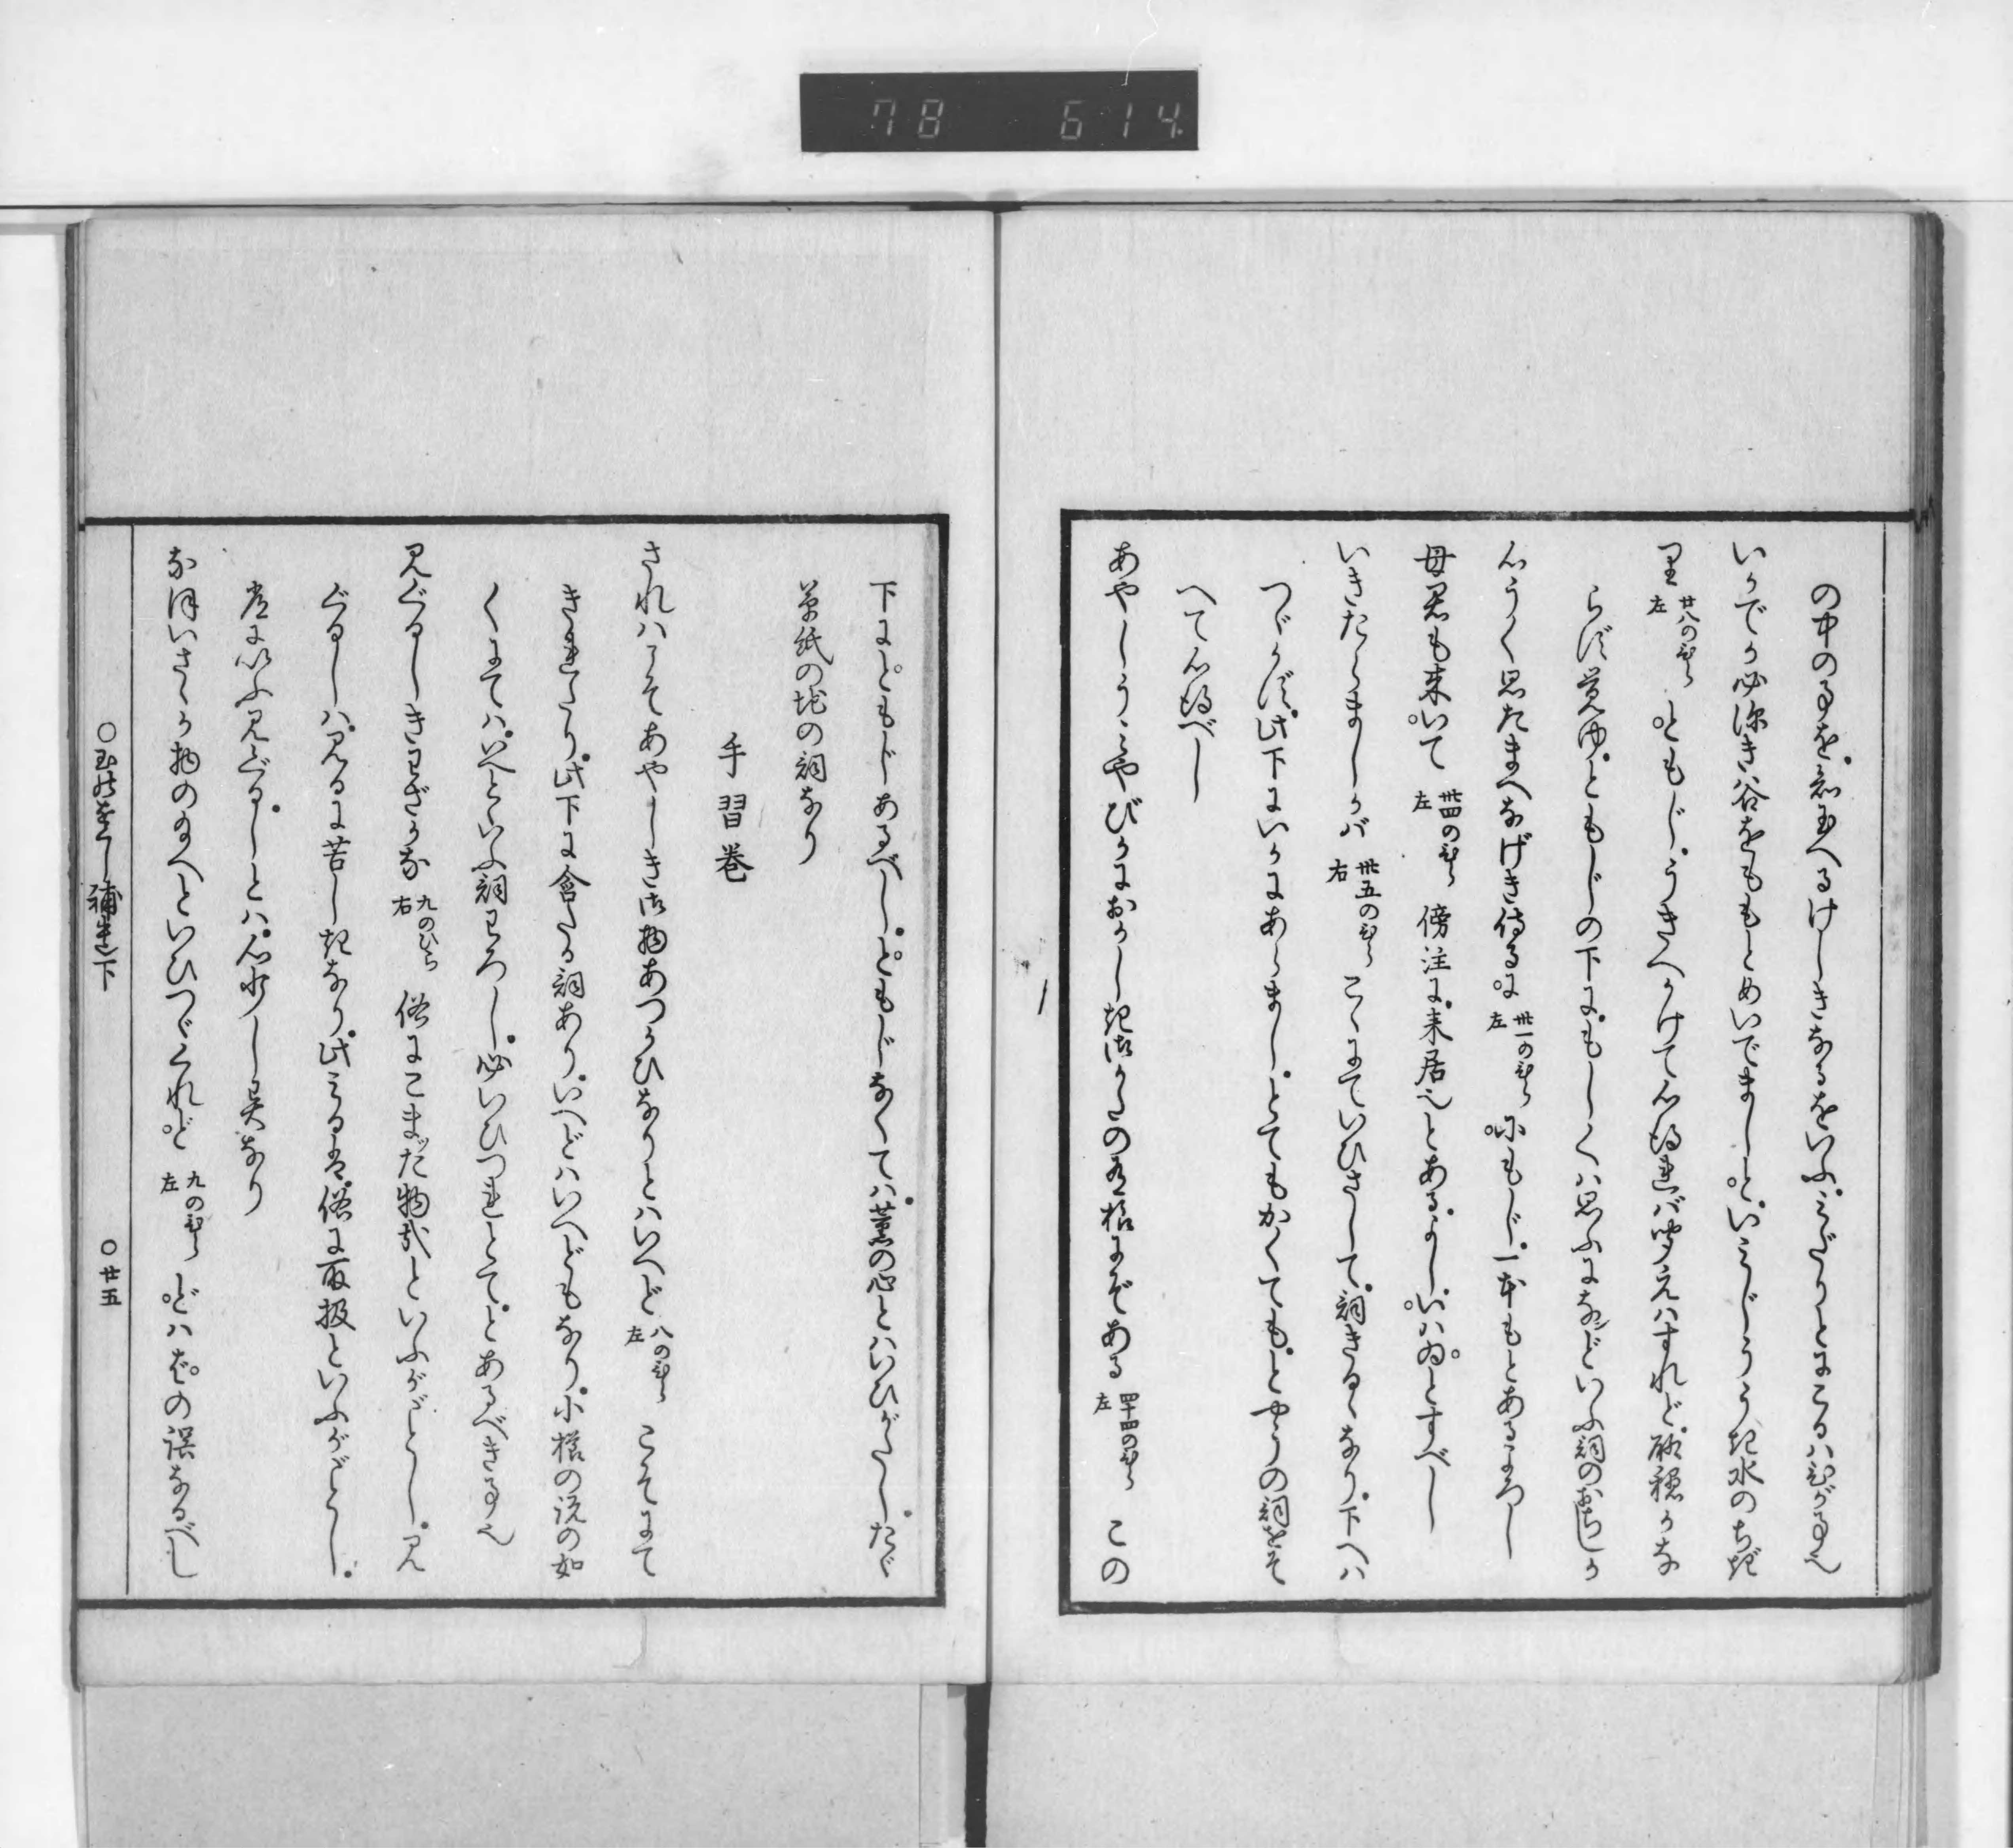 78 614
の中の事を、忍玉へるけしきなるをいふ、みだりとにごるハひがこと也
いかでか必深き谷をももとめいでまし。といみじううき水のちぎ
里 廿八のひら左 ともじ、うきへかけて心得れバ聞えハすれど、猶穏かな
らず覚ゆ、ともじの下に、もしくハ思ふになどいふ詞のおちしか
心うく思たまへなげき侍るに 卅一のひら左 にもじ、一本もとあるよろし
母君も来いて 卅四のひら左 傍注に、来居也とあるよし、いハゐとすべし
いきたらましかバ 卅五のひら右 こゝにていひさして、詞きるゝなり、下へハ
つゞかず、此下にいかにあらまし、とてもかくても、とやうの詞をそ
へて心得べし
あやしうみやびかにおかしき御かたの有様にぞある 四十四のひら左 この
下にともじあるべし、ともじなくてハ、薫の心とハいひがたし、たゞ
草紙の地の詞なり
手習巻
されハこそあやしき御物あつかひなりとハいへど 八のひら左 こそにて
きれたり、此下に含たる詞あり、いへどハいへどもなり、小櫛の説の如
くにてハ、いへといふ詞わろし、必いひつれとて、とあるべき事也
見ぐるしきわざかな 九のひら右 俗にこまだ物哉といふがごとし、見
ぐるしハ、見るに苦しきなり、此みるは、俗に取扱といふがごとし、
常にいふ見ぐるしとハ、心少し異なり
なほいさゝか物のたまへといひつゞくれど 九のひら左 どハばの誤なるべし
○玉能をくし補遺下 ○廿五